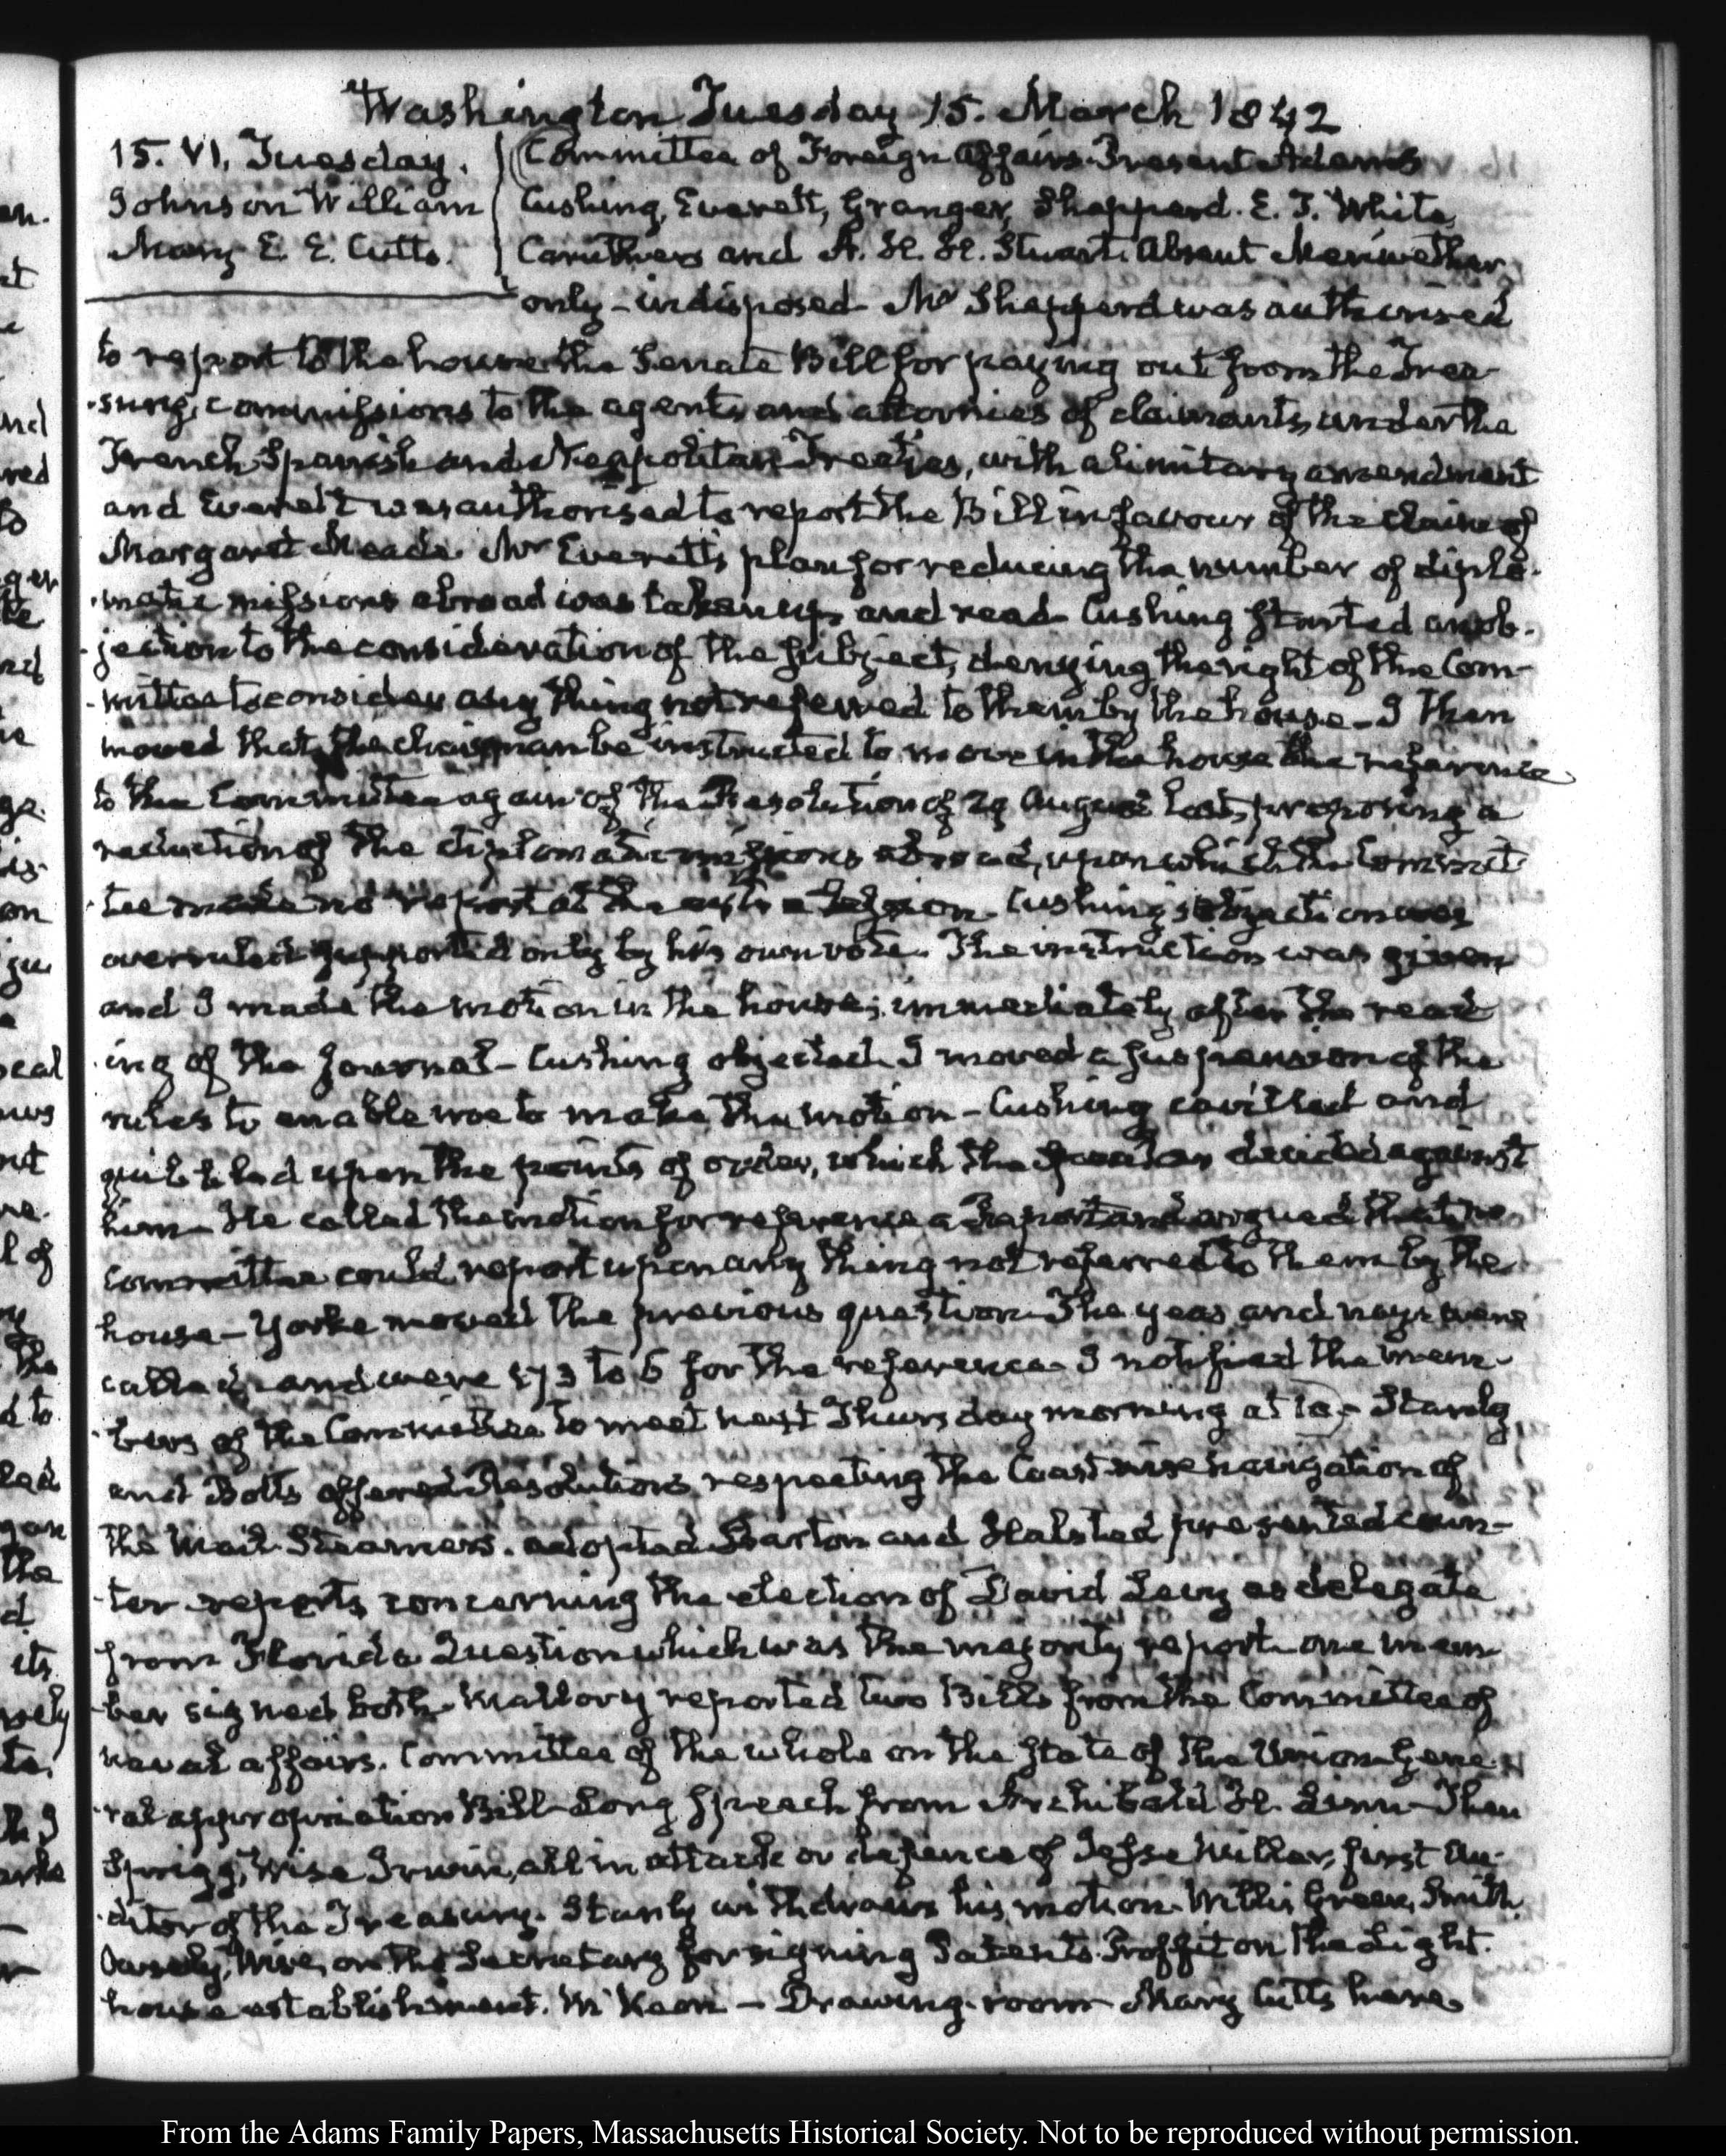 Washington Tuesday 15. March 1842
15. VI. Tuesday.
Johnson William
Mary E. E. Cutts.
Committee of Foreign Affairs. Present Adams
Cushing, Everett, Granger, Shepperd. E. J. White,
Caruthers and A. H. H. Stuart. Absent Meriwether
only – indisposed. Mr Shepperd was authorised
to report to the house the Senate Bill for paying out from the Trea-
-sury, commissions to the agents and attornies of claimants, under the
French Spanish and Neapolitan Treaties, with a limitary amendment
and Everett was authorised to report the Bill in favour of the claim of
Margaret Meade. Mr Everett's plan for reducing the number of diplo-
-matic missions abroad was taken up, and read. Cushing started an ob-
-jection to the consideration of the subject, denying the right of the Com-
-mittee to consider any thing not referred to them by the house – I then
moved that the chairman be instructed to move in the house the reference
to the Committee again of the Resolution of 29 August last, proposing a
reduction of the diplomatic missions abroad, upon which the Commit-
-tee made no report at the extra Session. Cushing's objection was
overruled supported only by his own vote. The instruction was given
and I made the motion in the house; immediately after the read-
-ing of the Journal – Cushing objected. I moved a suspension of the
rules to enable me to make the motion – Cushing cavilled and
quibbled upon the points of order, which the Speaker decided against
him – He called the motion for reference a Report and argued that no
Committee could report upon any thing not referred to them by the
house – Yorke moved the previous question. The yeas and nays were
called, and were 173 to 5 for the reference. I notified the mem-
-bers of the Committee to meet next Thursday morning at 10 – Stanly
and Botts offered Resolutions respecting the Coast wise navigation of
the Mail Steamers. adopted. Barton and Halsted presented coun-
-ter reports concerning the election of David Levy as delegate
from Florida. Question which was the majority report. one mem-
-ber signed both. Mallory reported two Bills from the Committee of
naval affairs. Committee of the whole on the State of the Union. Gene-
-ral appropriation Bill. Long Speech from Archibald H. Linn – Then
Sprigg, Wise Irwin, all in attack or defence of Jesse Miller, first Au-
-ditor of the Treasury. Stanly withdraws his motion. Willis Green, Smith
Ously, Wise, on the Secretary for signing Patents. Proffit on the Light-
house establishment. McKeon – Drawing-room. Mary Cutts here.
From the Adams Family Papers, Massachusetts Historical Society. Not to be reproduced without permission.